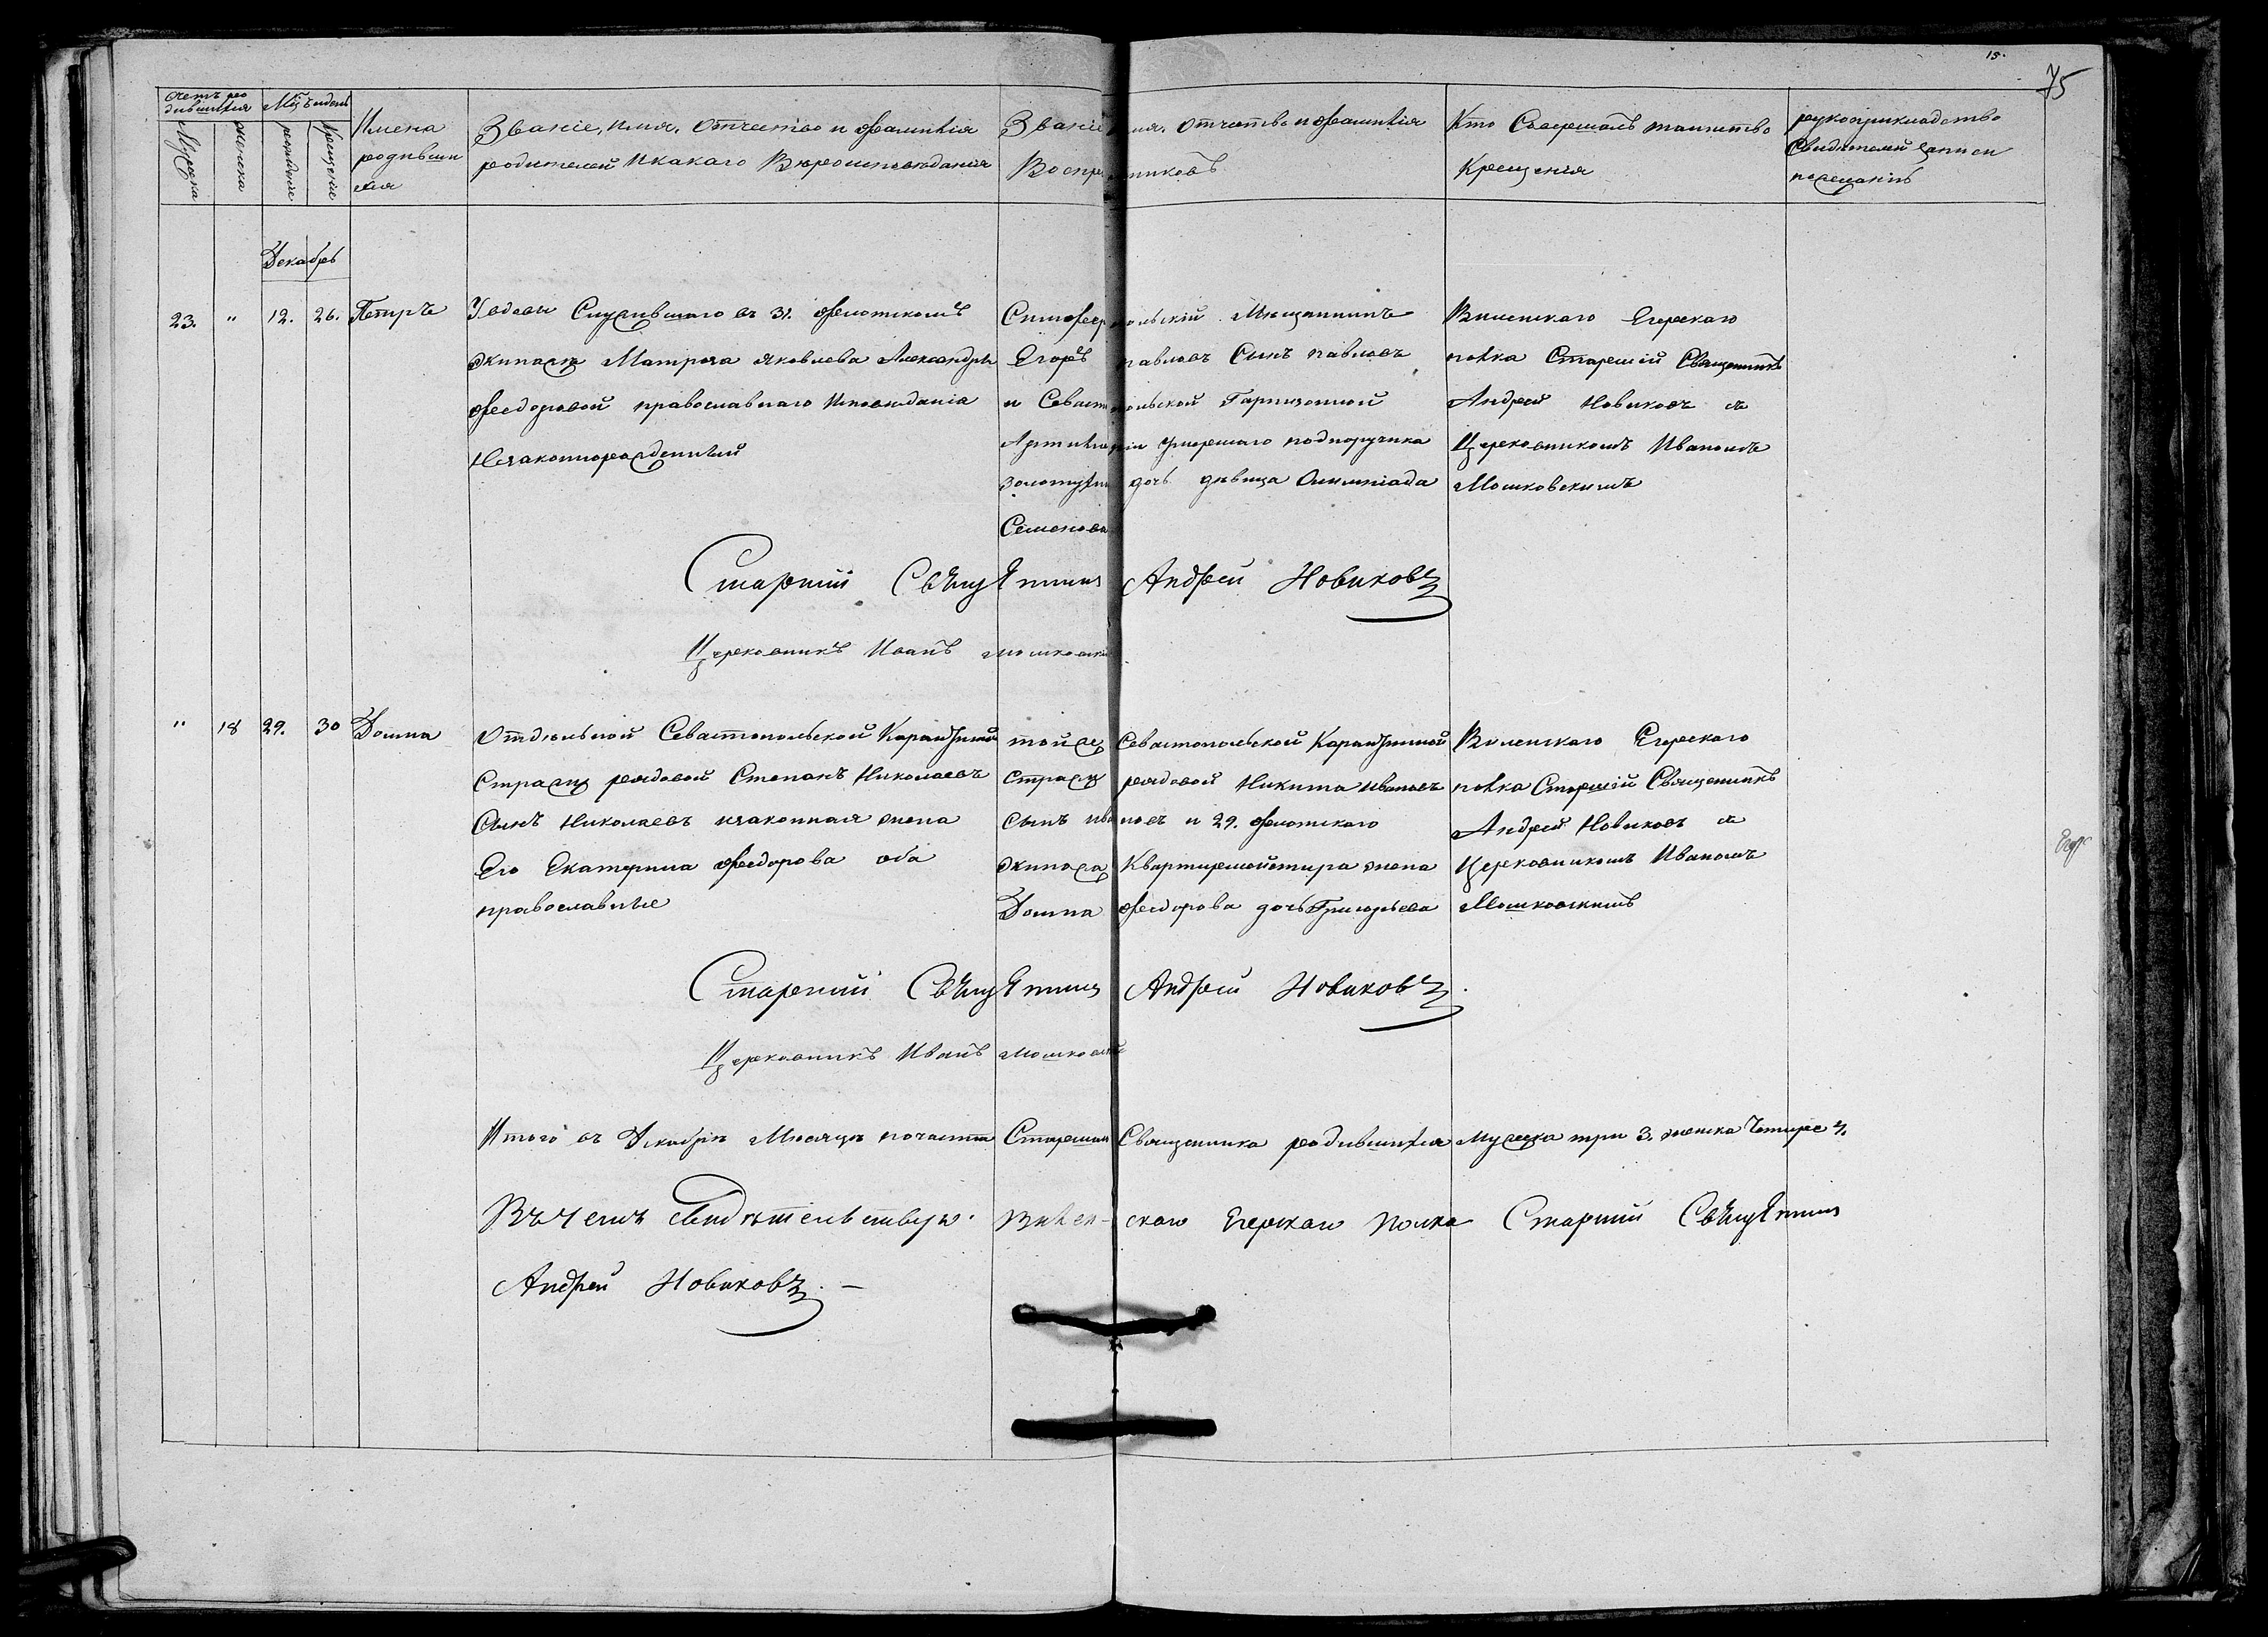 15.
75
Счетъ ро
дившихся
Мужеска
женска
Мцъ и день
рожденіе
Крещеніе
Имена
родивши
хся
Званіе, имя, отчество и фамилія
родителей и какаго Вѣроисповѣданія
Званіе имя, отчество и фамилія
Воспріемниковъ
Кто Совершалъ таинство
Крещенія
рукоприкладство
Свидѣтелей записи
по желанію
Декабрь
23. " 12. 26. Петръ
Удовы Служившаго въ 31. флотскомъ
экипажѣ Матроза Яковлева Александры
Феодоровой православнаго Исповѣданія
Незаконнорожденный
Симферопольскій Мѣщанинъ
Егоръ павловъ Сынъ павловъ
и Севастопольской Гарнизонной
Артиллеріи умершаго подпоручика
золотухина дочь дѣвица Олимпіада
Семенова
Виленскаго Егерскаго
полка Старшій Священникъ
Андрей Новиковъ съ
Церковникомъ Иваномъ
Мошковскимъ
Старший Священникъ Андрей Новиковъ
Церковникъ Иванъ Мошковскій
" 18 29. 30 Домна
Отдѣльной Севастопольской Карантинной
Стражи рядовой Степанъ Николаевъ
Сынъ Николаевъ и законная жена
Его Екатерина Феодорова оба
православные
той же Севастопольской Карантинной
Стражи рядовой Никита Ивановъ
Сынъ Ивановъ и 29. флотскаго
экипажа Квартирмейстира жена
Домна Феодорова дочь Григорьева
Виленскаго Егерскаго
полка Старшій Священникъ
Андрей Новиковъ съ
Церковникомъ Иваномъ
Мошковскимъ
Старший Священникъ Андрей Новиковъ.
Церковникъ Иванъ Мошковскій
Итого въ Декабрѣ Мѣсяцѣ по части Старшаго Священника родившихся Мужеска три 3. женска Четыре 4.
Въ чемъ свидѣтельствую. Виленскаго Егерскаго полка Старший Священникъ
Андрей Новиковъ. —